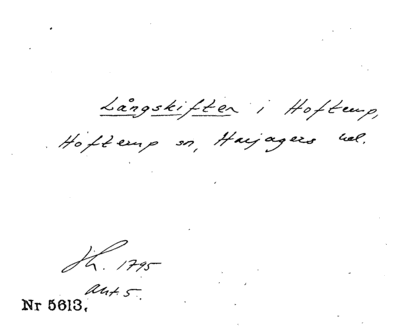 Långskiften i Hofterup,
Hofterup sn, Harjagers hd.
Jh. 1795
akt 5.
Nr 5613.